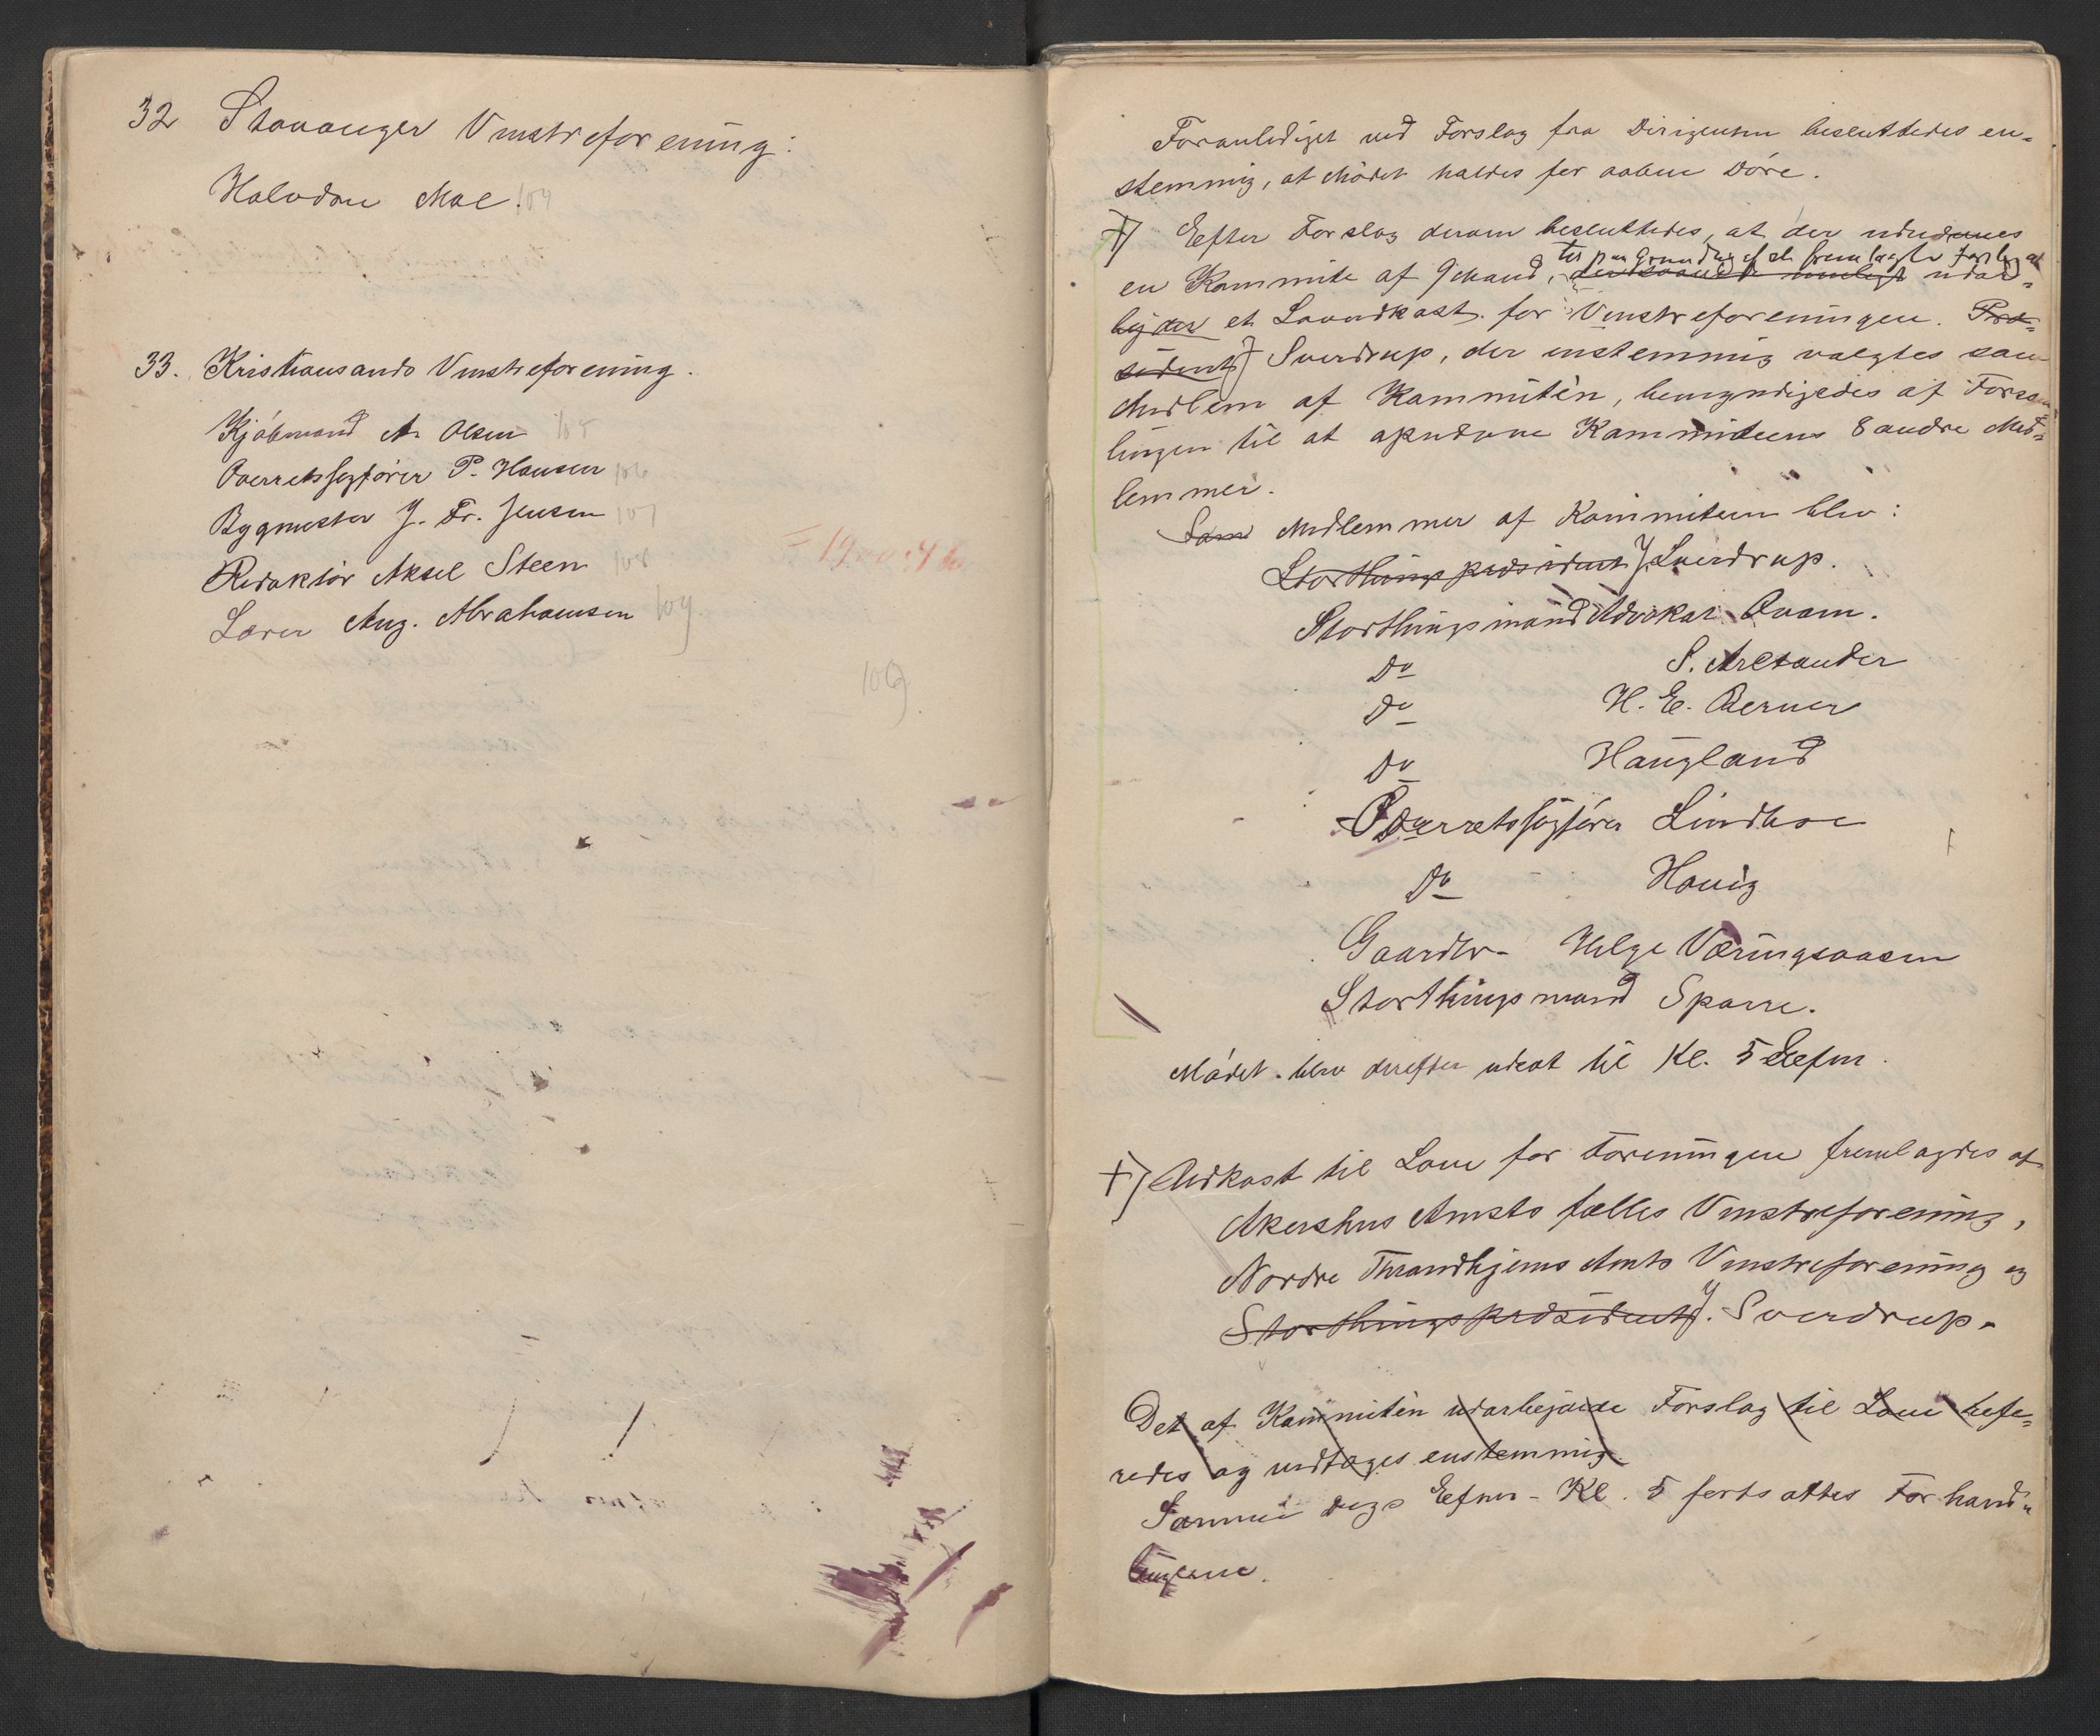 32 Stavanger Venstreforening:
Halvdan Moe. 104
33. Kristiansands Venstreforening.
Kjøbmand A. Olsen 105
Overretssagfører P. Hansen 106
Bygmester J. Fr. Jensen 107
Redaktør Aksel Steen 108
Lærer Aug. Abrahamsen 109
109
Foranlediget ved Forslag fra Dirigenten besluttedes en-
stemmig, at Mødet holdes for aabne Døre.
+) Efter Forslag derom besluttedes, at der uddannes
til paa Grundlag af de fremlagte Forslag at
en Kommite af 9 Mænd, udar-
bejder et Lovudkast for Venstreforeningen. Præ-
sident J Sverdrup, der enstemmig valgtes som
Medlem af Kommitèn, bemyndigedes af Forsam-
lingen til at opnævne Kommiteens 8 andre Med-
lemmer.
Som Medlemmer af Kommiteen blev:
Storthingspræsident J. Sverdrup.
Storthingsmand Advokat Qvam.
Do S. Arctander
Do H. E. Berner
Do Haugland
Overretssagfører Lindboe
Do Hovig
Gaardbr. Helge Væringsaasen
Storthingsmand Sparre.
Mødet blev derefter udsat til Kl. 5 Eefm.
+) Udkast til Love for Foreningen fremlagdes af
Akershus Amsts fælles Venstreforening,
Nordre Thrandhjems Amts Venstreforening og
Storthingspræsident J. Sverdrup.
Det af Kommitèn udarbejdede Forslag til Love refe-
redes og vedtoges enstemmig.
Samme Dags Eefm. Kl. 5 fortsattes Forhand-
lingerne.